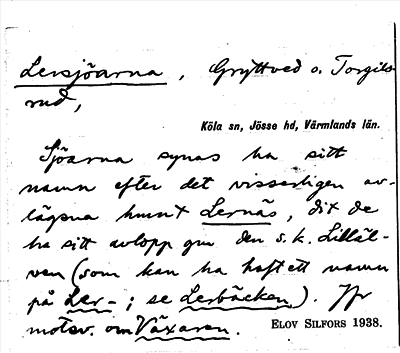 Lersjöarna, Gryttved o. Torgils-
rud,
Köla sn, Jösse hd, Värmlands län.
Sjöarna synas ha sitt
namn efter det visserligen av-
lägsna hemt Lernäs, dit de
ha sitt avlopp gm den s.k. Lilläl-
ven (som kan ha haft ett namn
på Ler-; se Lerbäcken). Jfr
motsv. om Växaren.
ELOV SILFORS 1938.